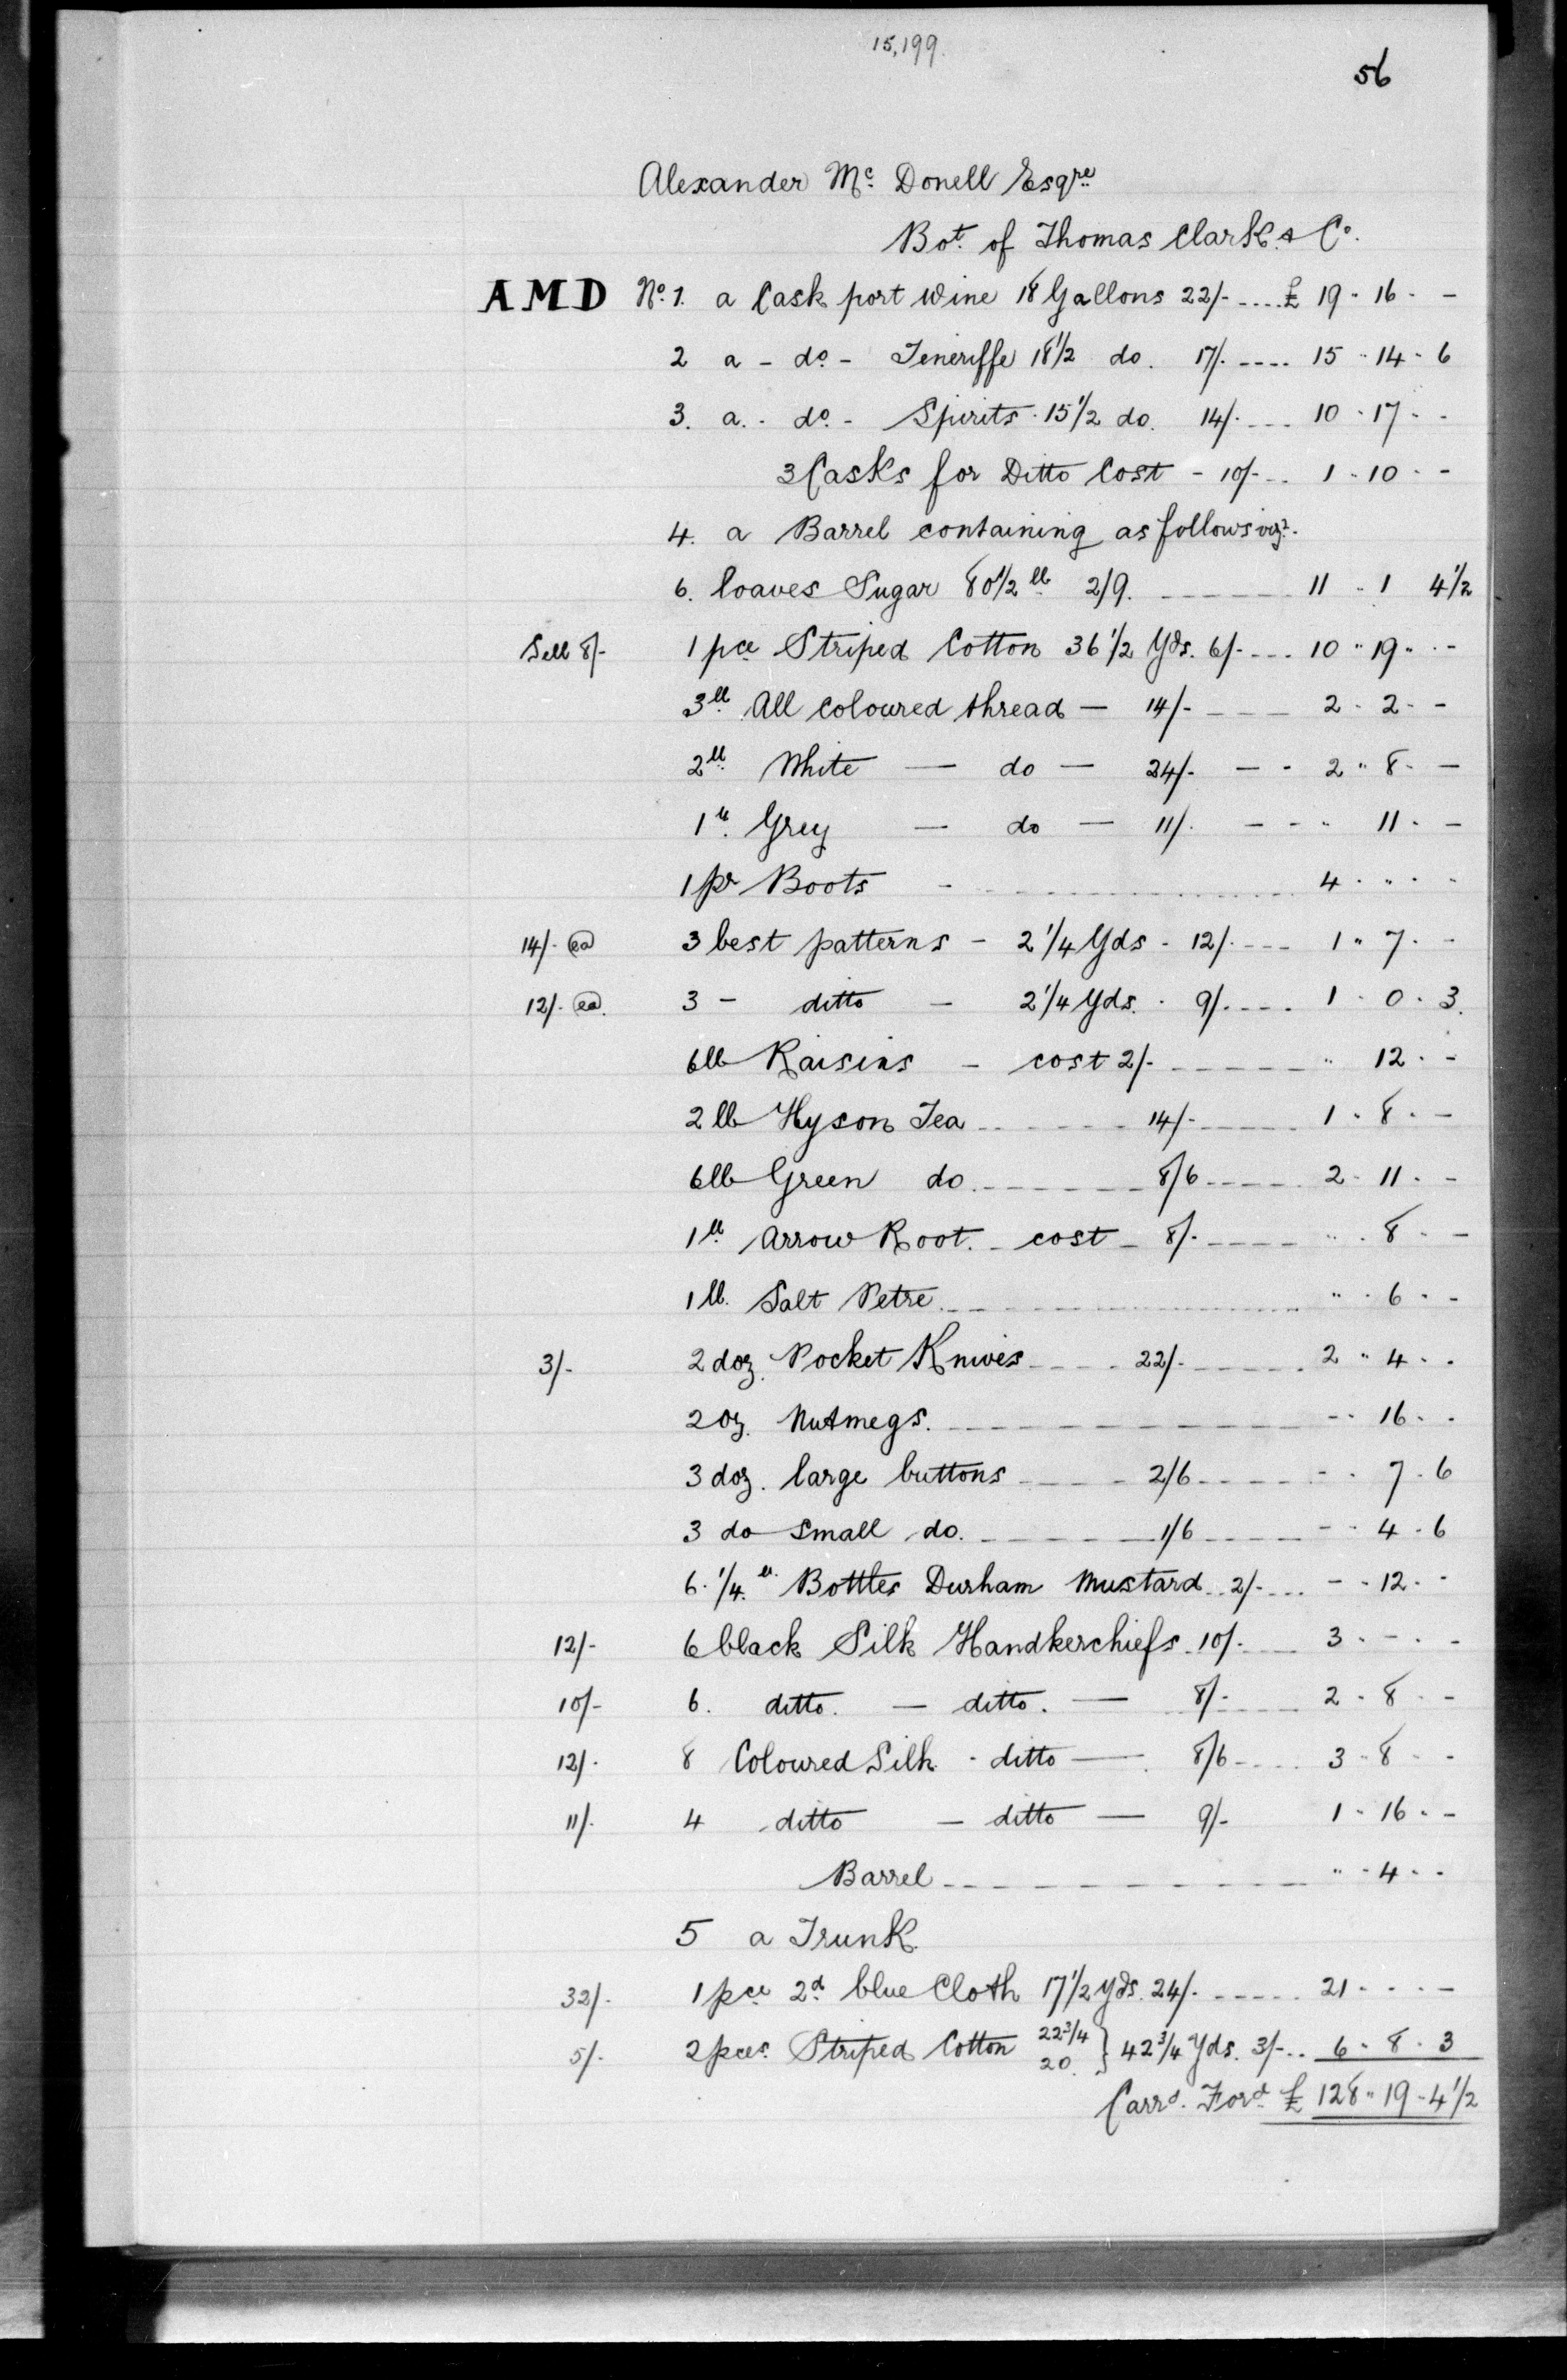 15,199.
56
Alexander Mc. Donell Esqre
Bot. of Thomas Clark & Co.
A M D No. 1. a Cask port Wine 18 Gallons 22/- .... £ 19 " 16 " -
2 a - do. - Teneriffe 18 1/2 do. 17/. .... 15 " 14 " 6
3. a. - do. - Spirits 15 1/2 do. 14/. ... 10 " 17 " -
3 Casks for Ditto Cost - 10/- .. 1 " 10 " -
4. a Barrel containing as follows viz.
6. loaves Sugar 80 1/2 lb 2/9. ------ 11 " 1 4 1/2
Sell 8/- 1 pce Striped Cotton 36 1/2 Yds. 6/- ... 10 " 19 " -
3 lb All Coloured thread - 14/- --- 2 " 2 " -
2 lb White - do - 24/- - - 2 " 8 " -
1 lb. Grey - do - 11/. - - " 11 " -
1 pr Boots - ........ 4 " " "
14/- ea 3 best patterns - 2 1/4 Yds - 12/. --- 1 " 7 " -
12/- ea. 3 - ditto - 2 1/4 Yds. - 9/. ---- 1 " 0 " 3.
6 lb Raisins - cost 2/- ------ " 12 " -
2 lb Hyson Tea ------ 14/- ---- 1 " 8 " -
6 lb Green do. ------ 8/6 ---- 2 " 11 " -
1 lb Arrow Root. - cost - 8/. ---- " 8 " -
1 lb. Salt Petre ........ " 6 " -
3/- 2 doz. Pocket Knives ---- 22/- ---- 2 " 4 " -
2 oz. Nutmegs. -------- - " 16 " -
3 doz. large buttons ---- 2/6 ---- - " 7 " 6
3 do small do. ------ 1/6 ---- - " 4 " 6
6. 1/4. lb. Bottles Durham Mustard .. 2/- ... - " 12 " -
12/- 6 black Silk Handkerchiefs .. 10/. --- 3 " - " -
10/- 6. ditto. - ditto. - 8/- ---- 2 " 8 " -
12/. 8 Coloured Silk - ditto - 8/6 .... 3 " 8 " -
11/. 4 ditto - ditto - 9/- 1 " 16 " -
Barrel -------- " " 4 " -
5 a Trunk
32/. 1 pce 2d blue Cloth 17 1/2 yds. 24/. ..... 21 " " -
5/. 2 pces. Striped Cotton 22 3/4 20. } 42 3/4 Yds. 3/- .. 6 " 8 " 3
Carrd. Ford. £ 128 " 19 - 4 1/2